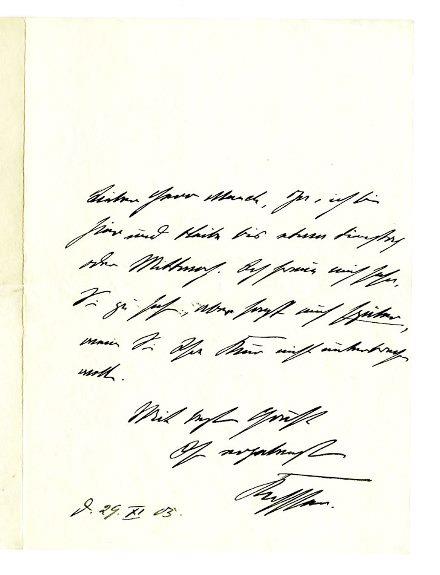 Lieber Herr Munch, Ja, ich bin
hier und bleibe bis etwa Dienstag
oder Mittwoch. Ich freue mich sehr,
Sie zu sehen, aber auch später,
wenn Sie Ihre Kur nicht unterbrechen
wollen.
Mit besten Grüssen
Ihr ergebenster
Kessler.
d. 29. XI 05.